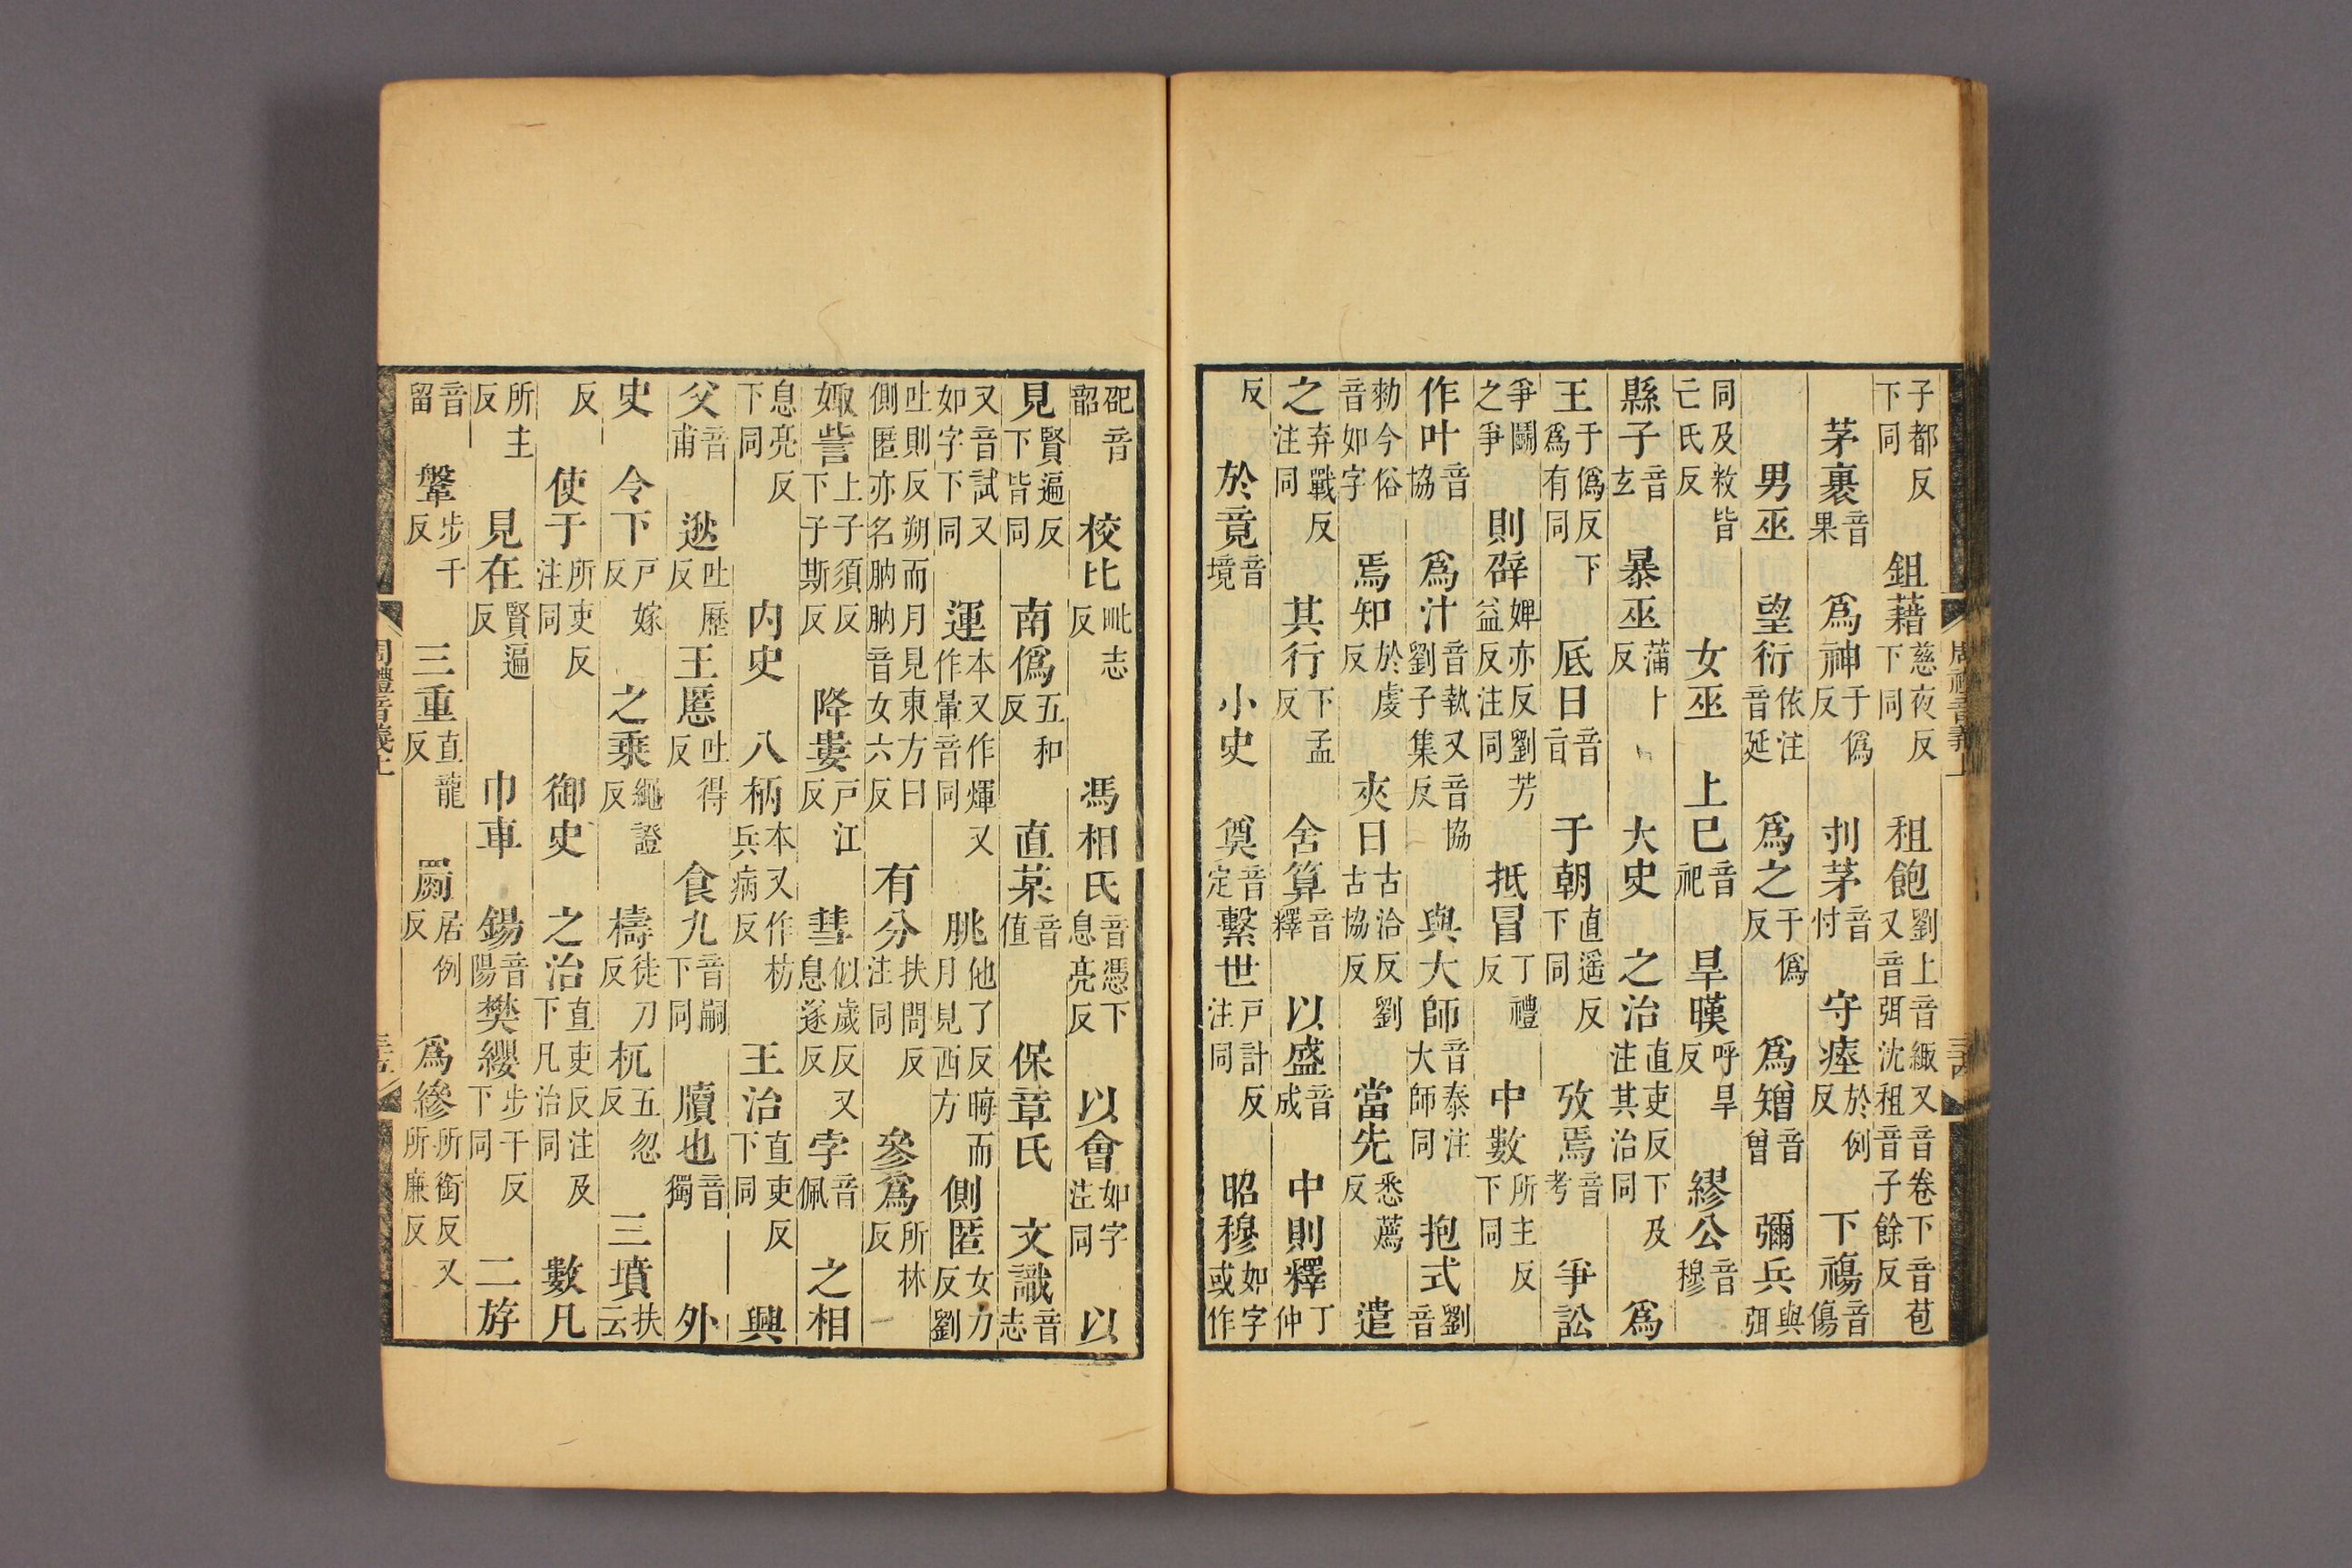 周禮音義上
子都反下同 鉏藉慈夜反下同 租飽劉上音緅又音卷下音苞又音弭沈租音子餘反
茅裹音果 爲神于僞反 刌茅音忖 守瘞於例反 下禓音傷
男巫 望衍依注音延 爲之于僞反 爲矰音曾 彌兵與弭
同及敉皆亡氏反 女巫 上巳音祀 旱暵呼旱反 繆公音穆
縣子音玄 暴巫蒲卜反 大史 之治直吏反下及注其治同 爲
王于僞反下爲有同 厎日音旨 于朝直遥反下同 攷焉音考 爭訟
爭鬭之爭 則辟婢亦反劉芳益反注同 抵冒丁禮反 中數所主反下同
作叶音協 爲汁音執又音協劉子集反 與大師音泰注大師同 抱式劉音
勑今俗音如字 焉知於虔反 夾日古洽反劉古協反 當先悉薦反 遣
之弃戰反注同 其行下孟反 舍算音釋 以盛音成 中則釋丁仲
反 於竟音境 小史 奠音定 繫世戶計反注同 昭穆如字或作
音韶 校比毗志反 馮相氏音憑下息亮反 以會如字注同 以
見賢遍反下皆同 南僞五和反 直某音值 保章氏 文識音志
又音試又如字下同 運本又作煇又作暈音同 朓他了反晦而月見西方 側匿女力反劉
吐則反朔而月見東方曰側匿亦名朒朒音女六反 有分扶問反注同 參爲所林反
娵訾上子須反下子斯反 降婁戶江反 彗似歲反又息遂反 孛音佩 之相
息亮反下同 内史 八柄本又作枋兵病反 王治直吏反下同 興
父音甫 逖吐歷反 王慝吐得反 食九音嗣下同 牘也音獨 外
史 令下戶嫁反 之乘繩證反 檮徒刀反 杌五忽反 三墳扶云
反 使于所吏反注同 御史 之治直吏反注及下凡治同 數凡
所主反 見在賢遍反 巾車 鍚音陽 樊纓步干反下同 二斿
音留 鞶步干反 三重直龍反 罽居例反 爲縿所銜反又所廉反
周禮音義上